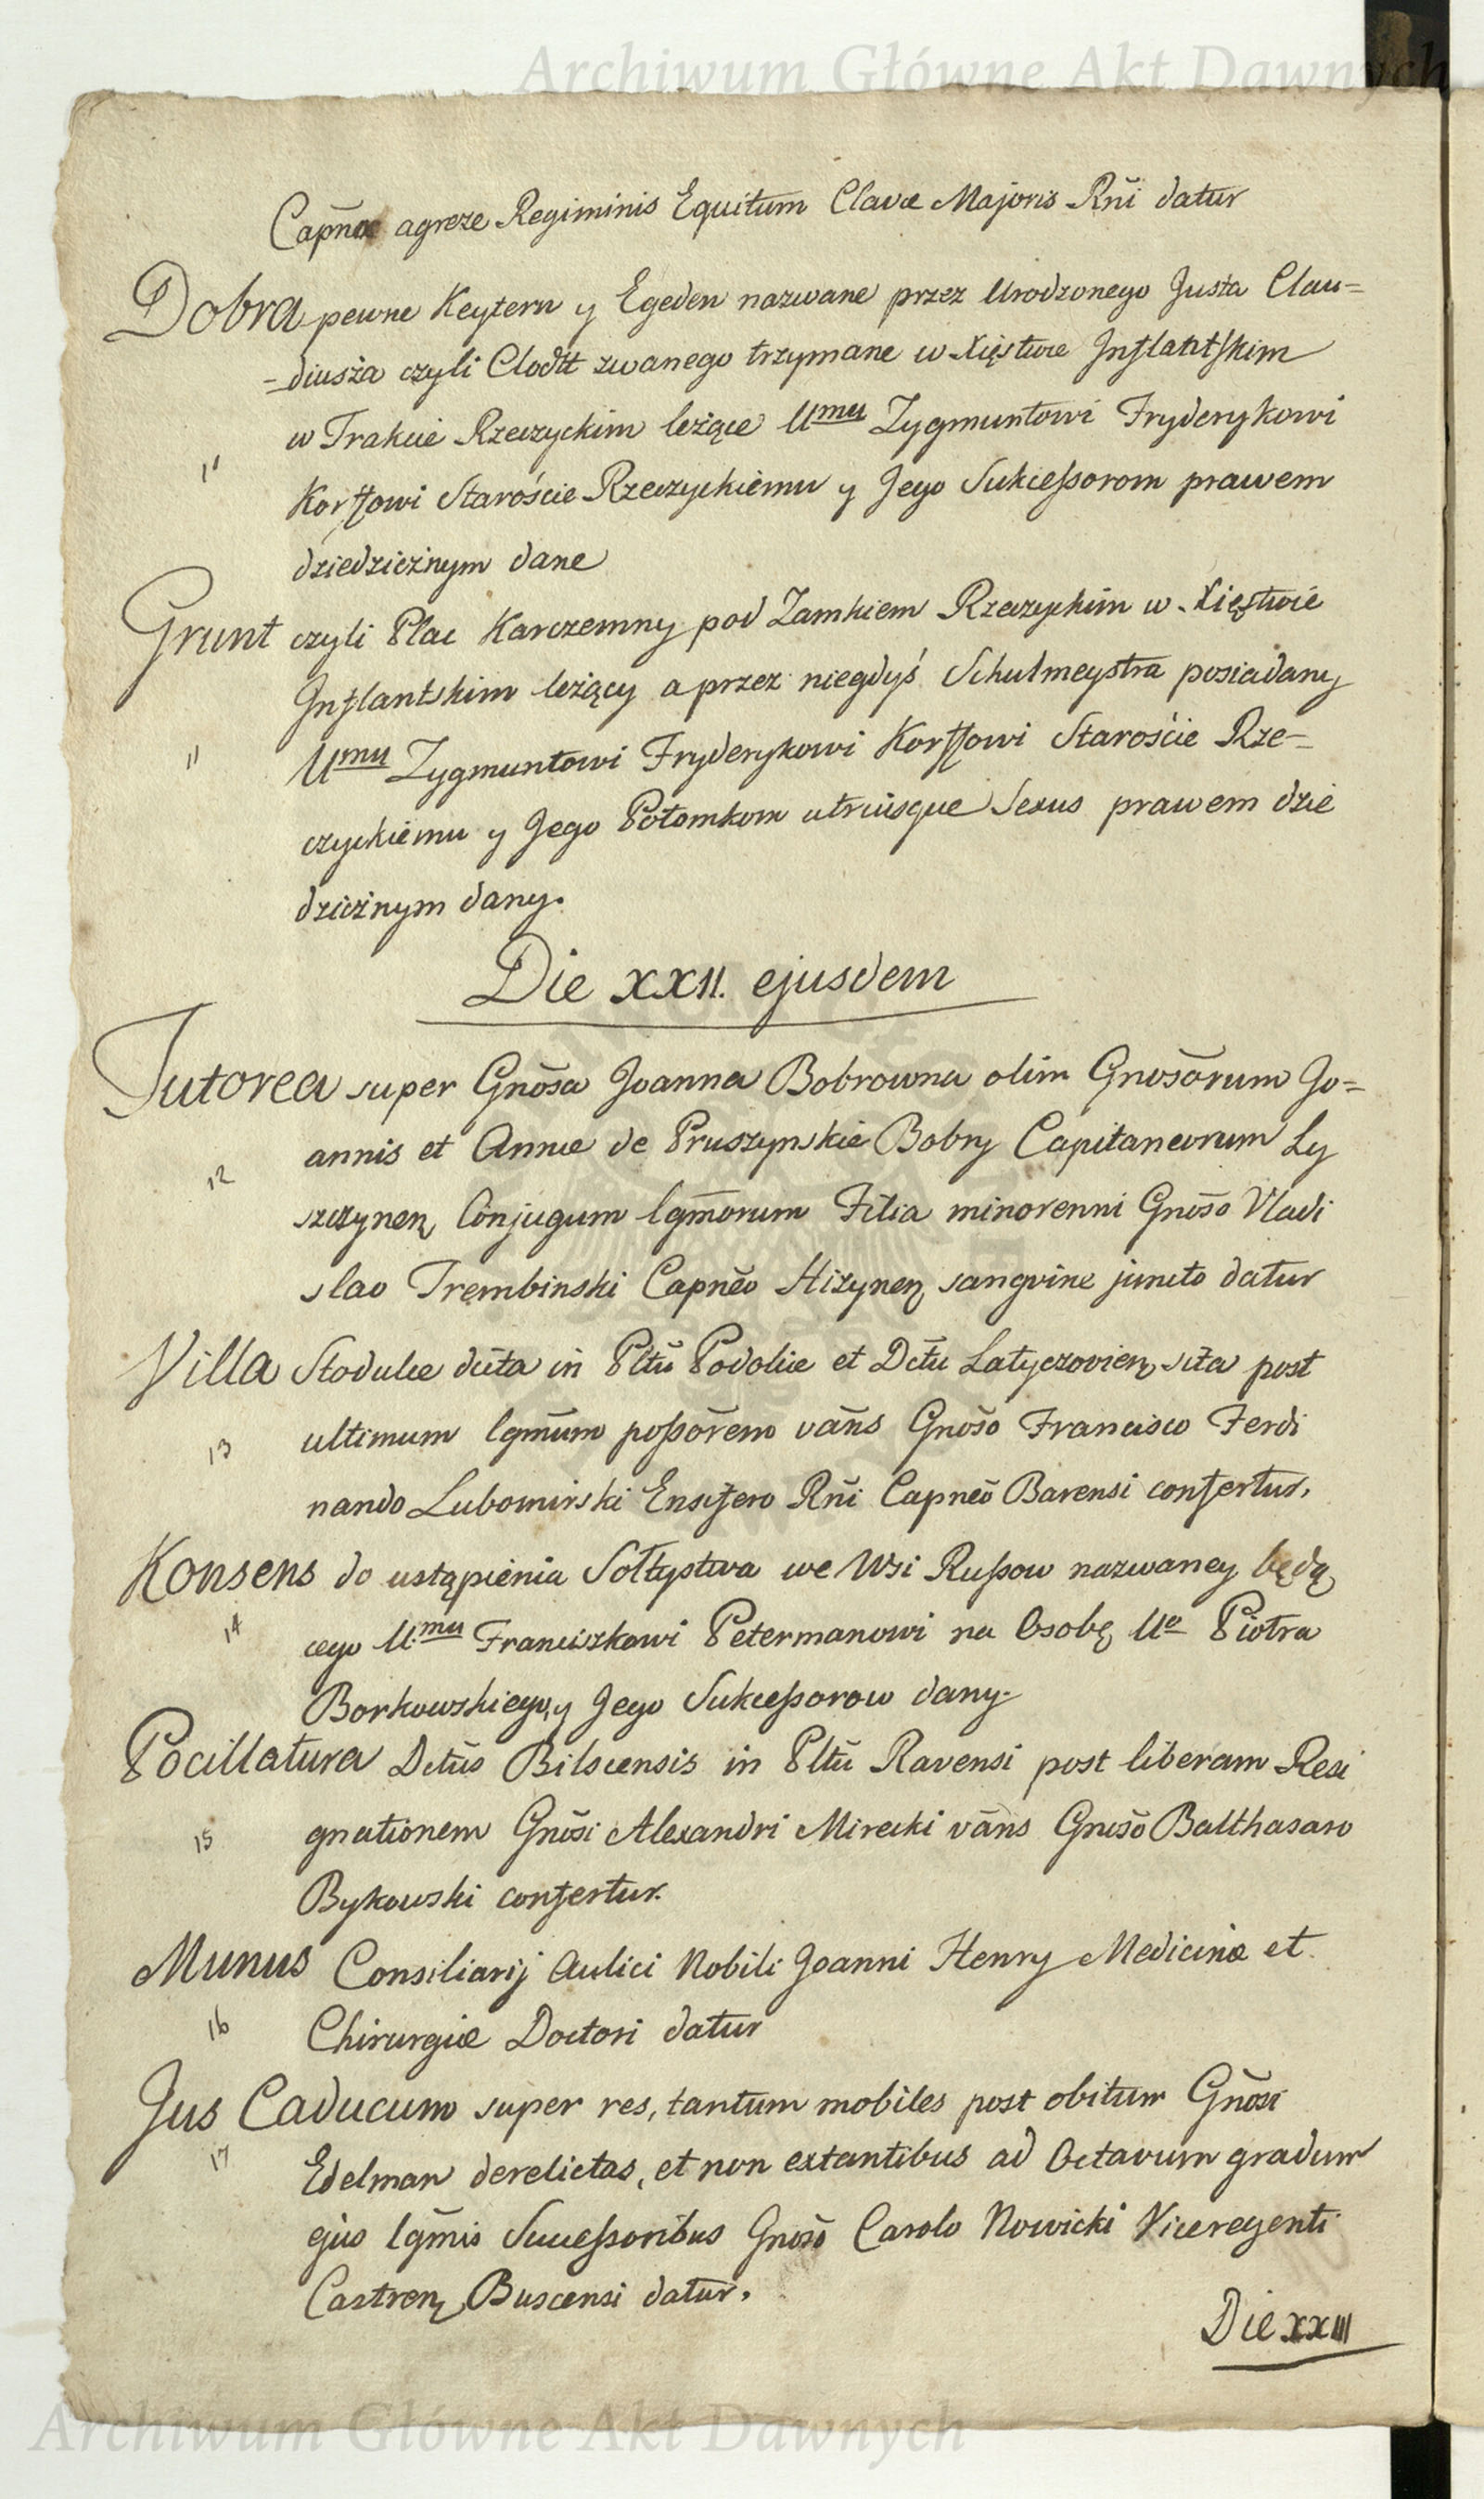 Archiwum Główne Akt Dawnych
Capnae agreze Regiminis Equitum Clavæ Majoris Rñi datur
Dobra pewne Keytern y Egeden nazwane przez Urodzonego Justa Clau=
=diusza czyli Clodtt zwanego trzymane w Xięstwie Inflantskim
w Trakcie Rzeczyckim leżące Umu Zygmuntowi Fryderykowi
11 Korffowi Staroście Rzeczyckiemu y Jego Sukcessorom prawem
dziedzicznym dane
Grunt czyli Plac Karczemny pod Zamkiem Rzeczyckim w Xięstwie
Inflantskim leżący a przez niegdyś Schulmeystra posiadany
11 Umu Zygmuntowi Fryderykowi Korffowi Staroście Rze=
czyckiemu y Jego Potomkom utriusque Sexus prawem dzie
dzicznym dany.
Die XXII. ejusdem
Tutorea super Gnõsa Joanna Bobrowna olim Gnosõrum Jo=
annis et Annæ de Pruszynskie Bobry Capitaneorum Ly
12
szczynen Conjugum lgm̃orum Filia minorenni Gnõso Vladi
slao Trembinski Capnẽo Hizynen sangvine juncto datur
Villa Stodulce dicta in Pltũ Podoliæ et Dctũ Latyczovien sita post
13 ultimum lgm̃um possõrem vañs Gnõso Francisco Ferdi
nando Lubomirski Ensifero Rñi Capneõ Barensi confertur.
Konsens do ustąpienia Sołtystwa we Wsi Russow nazwaney będą
14 cego U.mu Franciszkowi Petermanowi na Osobę Uo Piotra
Borkowskiego, y Jego Sukcessorow dany.
Pocillatura Dctũs Bilscensis in Pltũ Ravensi post liberam Resi
15 gnationem Gnõsi Alexandri Mirecki vãns Gnosõ Balthasaro
Bykowski confertur.
Munus Consiliarij Aulici Nobili Joanni Henry Medicinæ et
16 Chirurgiæ Doctori datur
Jus Caducum super res, tantum mobiles post obitum Gnõsi
17 Edelman derelictas, et non extantibus ad Octavum gradum
ejus lgm̃is Successoribus Gnosõ Carolo Nowicki Viceregenti
Castren Buscensi datur.
Die XXIII
Archiwum Główne Akt Dawnych